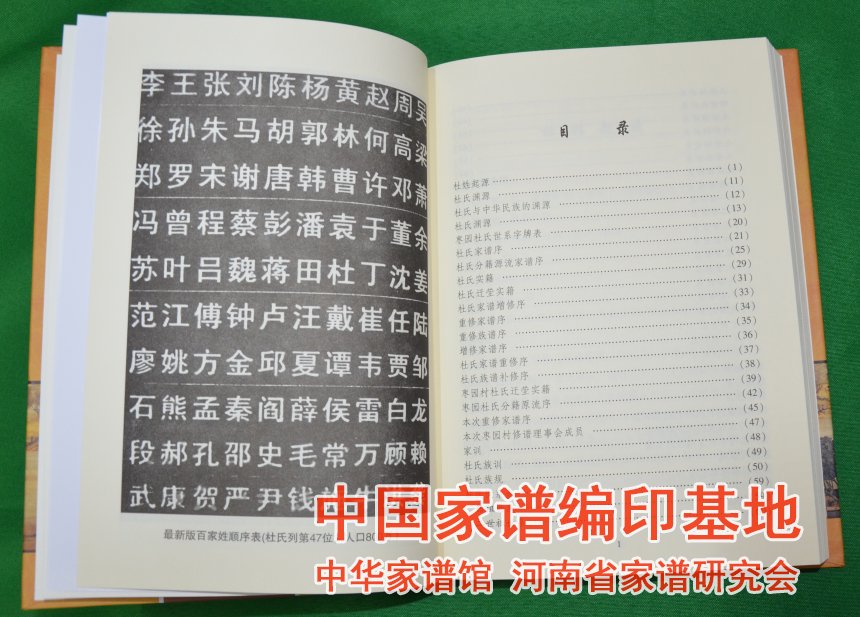 李王张刘陈杨黄赵周吴
徐孙朱马胡郭林何高梁
郑罗宋谢唐韩曹许邓萧
冯曾程蔡彭潘袁于董余
苏叶吕魏蒋田杜丁沈姜
范江傅钟卢汪戴崔任陆
廖姚方金邱夏谭韦贾邹
石熊孟秦阎薛侯雷白龙
段郝孔邵史毛常万顾赖
武康贺严尹钱
最新版百家姓顺序表(杜氏列第47位 人口80
目 录
杜姓起源 (1)
杜氏渊源 (11)
杜氏与中华民族的渊源 (12)
杜氏渊源 (13)
枣园杜氏世系字牌表 (20)
杜氏家谱序 (21)
杜氏分籍源流家谱序 (25)
杜氏实籍 (29)
杜氏迁茔实籍 (31)
杜氏家谱增修序 (33)
重修家谱序 (34)
重修族谱序 (35)
增修家谱序 (36)
杜氏家谱重修序 (37)
杜氏族谱补修序 (38)
枣园村杜氏迁茔实籍 (39)
枣园杜氏分籍源流序 (42)
本次重修家谱序 (45)
本次枣园村修谱理事会成员 (47)
家训 (48)
杜氏族训 (49)
杜氏族规 (50)
(59)
1
中国家谱编印基地
中华家谱馆 河南省家谱研究会